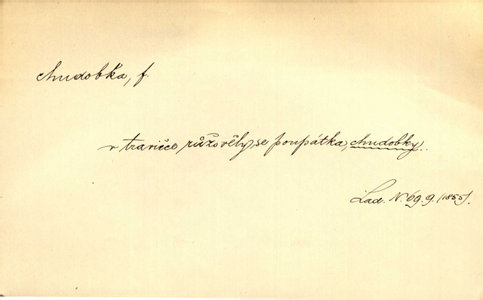 chudobka, f.
v travičce růžověly se poupátka, chudobky.
Lad. N. 69. 9 (1855).